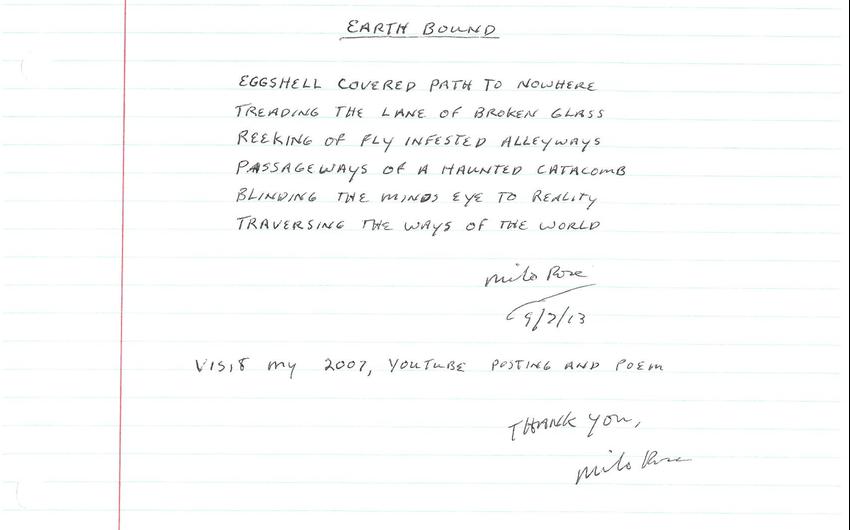 EARTH BOUND
EGGSHELL COVERED PATH TO NOWHERE
TREADING THE LANE OF BROKEN GLASS
REEKING OF FLY INFESTED ALLEYWAYS
PASSAGEWAYS OF A HAUNTED CATACOMB
BLINDING THE MINDS EYE TO REALITY
TRAVERSING THE WAYS OF THE WORLD
Milo Rose
9/2/13
VISIT MY 2007, YOUTUBE POSTING AND POEM
THANK YOU,
Milo Rose